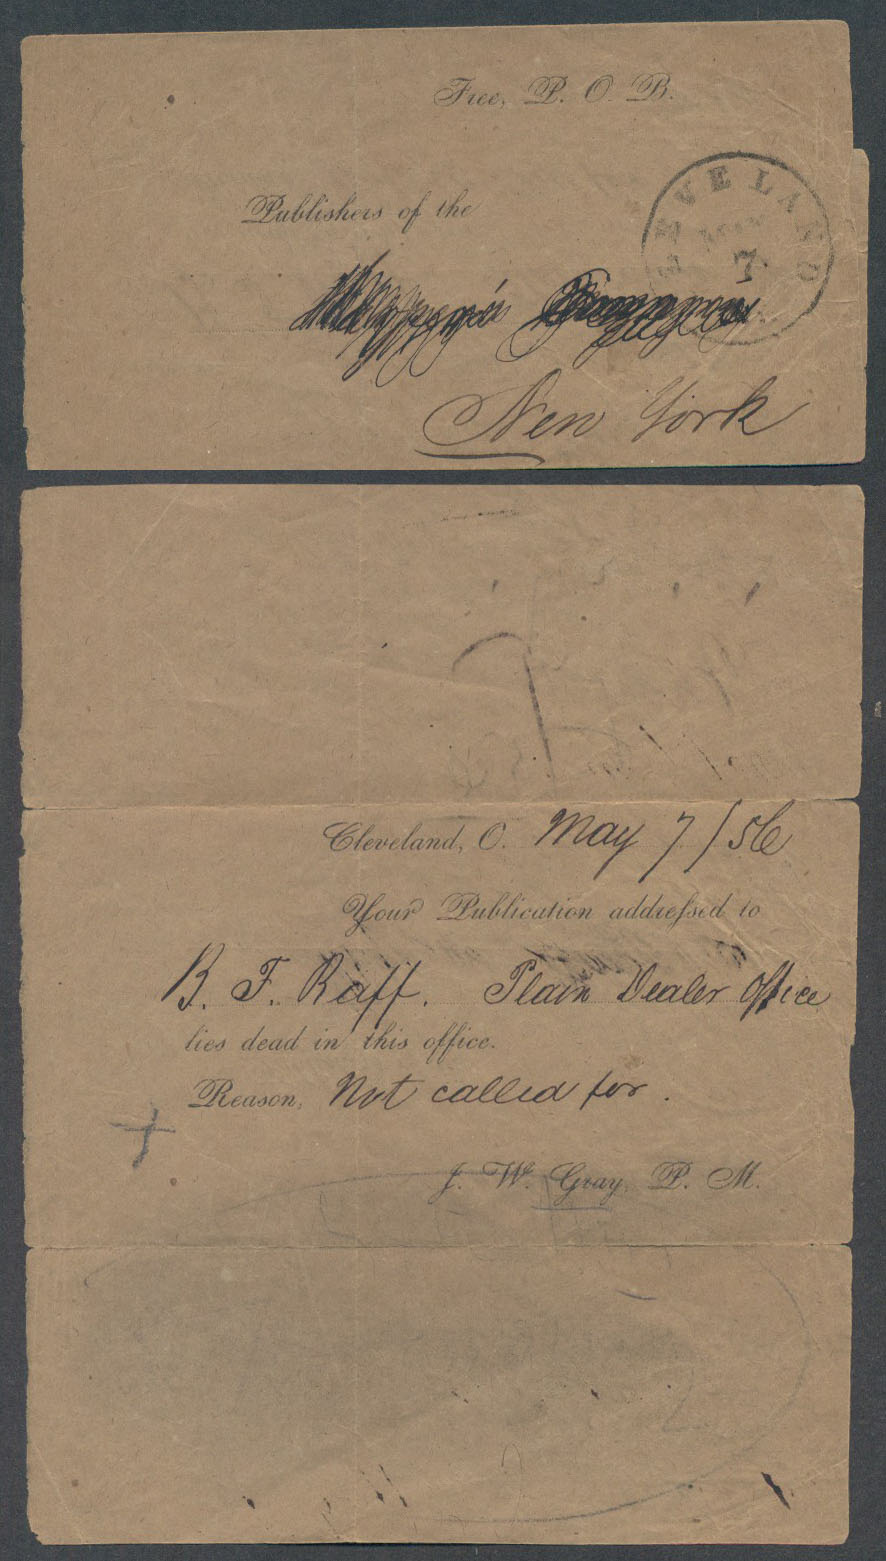 Free, P. O. B.
CLEVELAND
MAY
7
Publishers of the
New York
Cleveland, O. May 7 / 56
Your Publication addressed to
B. F. Raff. Plain Dealer Office
lies dead in this office.
Reason, Not called for.
J. W. Gray, P. M.